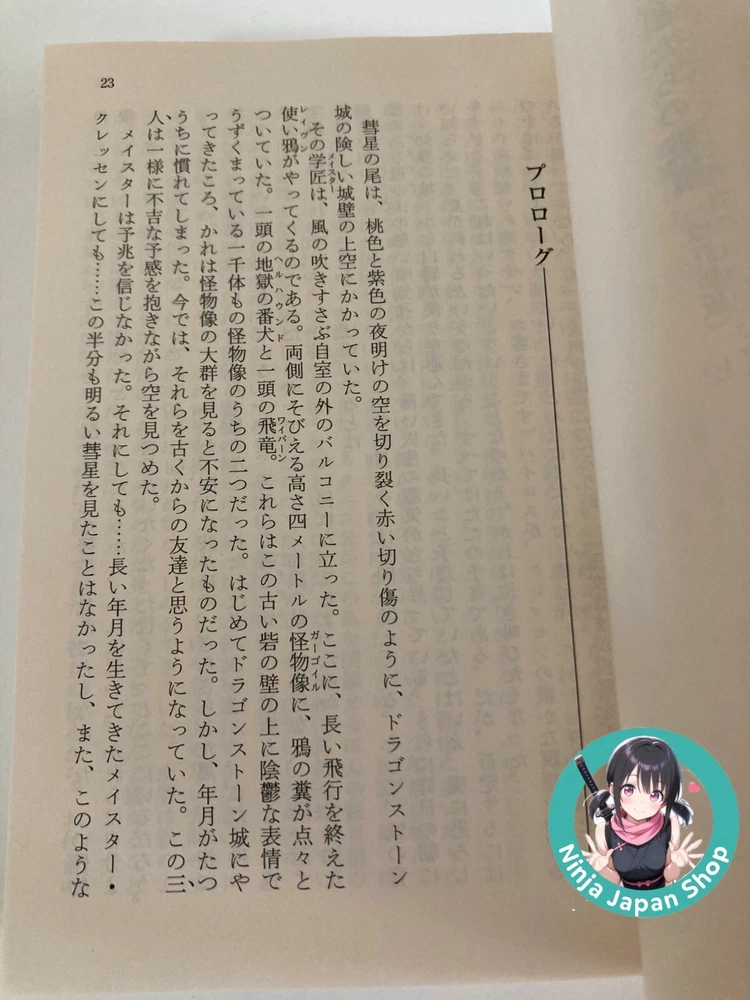 23
プロローグ
彗星の尾は、桃色と紫色の夜明けの空を切り裂く赤い切り傷のように、ドラゴンストーン
城の険しい城壁の上空にかかっていた。
その学匠は、風の吹きすさぶ自室の外のバルコニーに立った。ここに、長い飛行を終えた
メイスター
使い鴉がやってくるのである。両側にそびえる高さ四メートルの怪物像に、鴉の糞が点々と
レイヴン
ガーゴイル
ついていた。一頭の地獄の番犬と一頭の飛竜。これらはこの古い砦の壁の上に陰鬱な表情で
ヘルハウンド
ワイバーン
うずくまっている一千体もの怪物像のうちの二つだった。はじめてドラゴンストーン城にや
ってきたころ、かれは怪物像の大群を見ると不安になったものだった。しかし、年月がたつ
うちに慣れてしまった。今では、それらを古くからの友達と思うようになっていた。この三
人は一様に不吉な予感を抱きながら空を見つめた。
メイスターは予兆を信じなかった。それにしても……長い年月を生きてきたメイスター・
クレッセンにしても……この半分も明るい彗星を見たことはなかったし、また、このような
Ninja Japan Shop